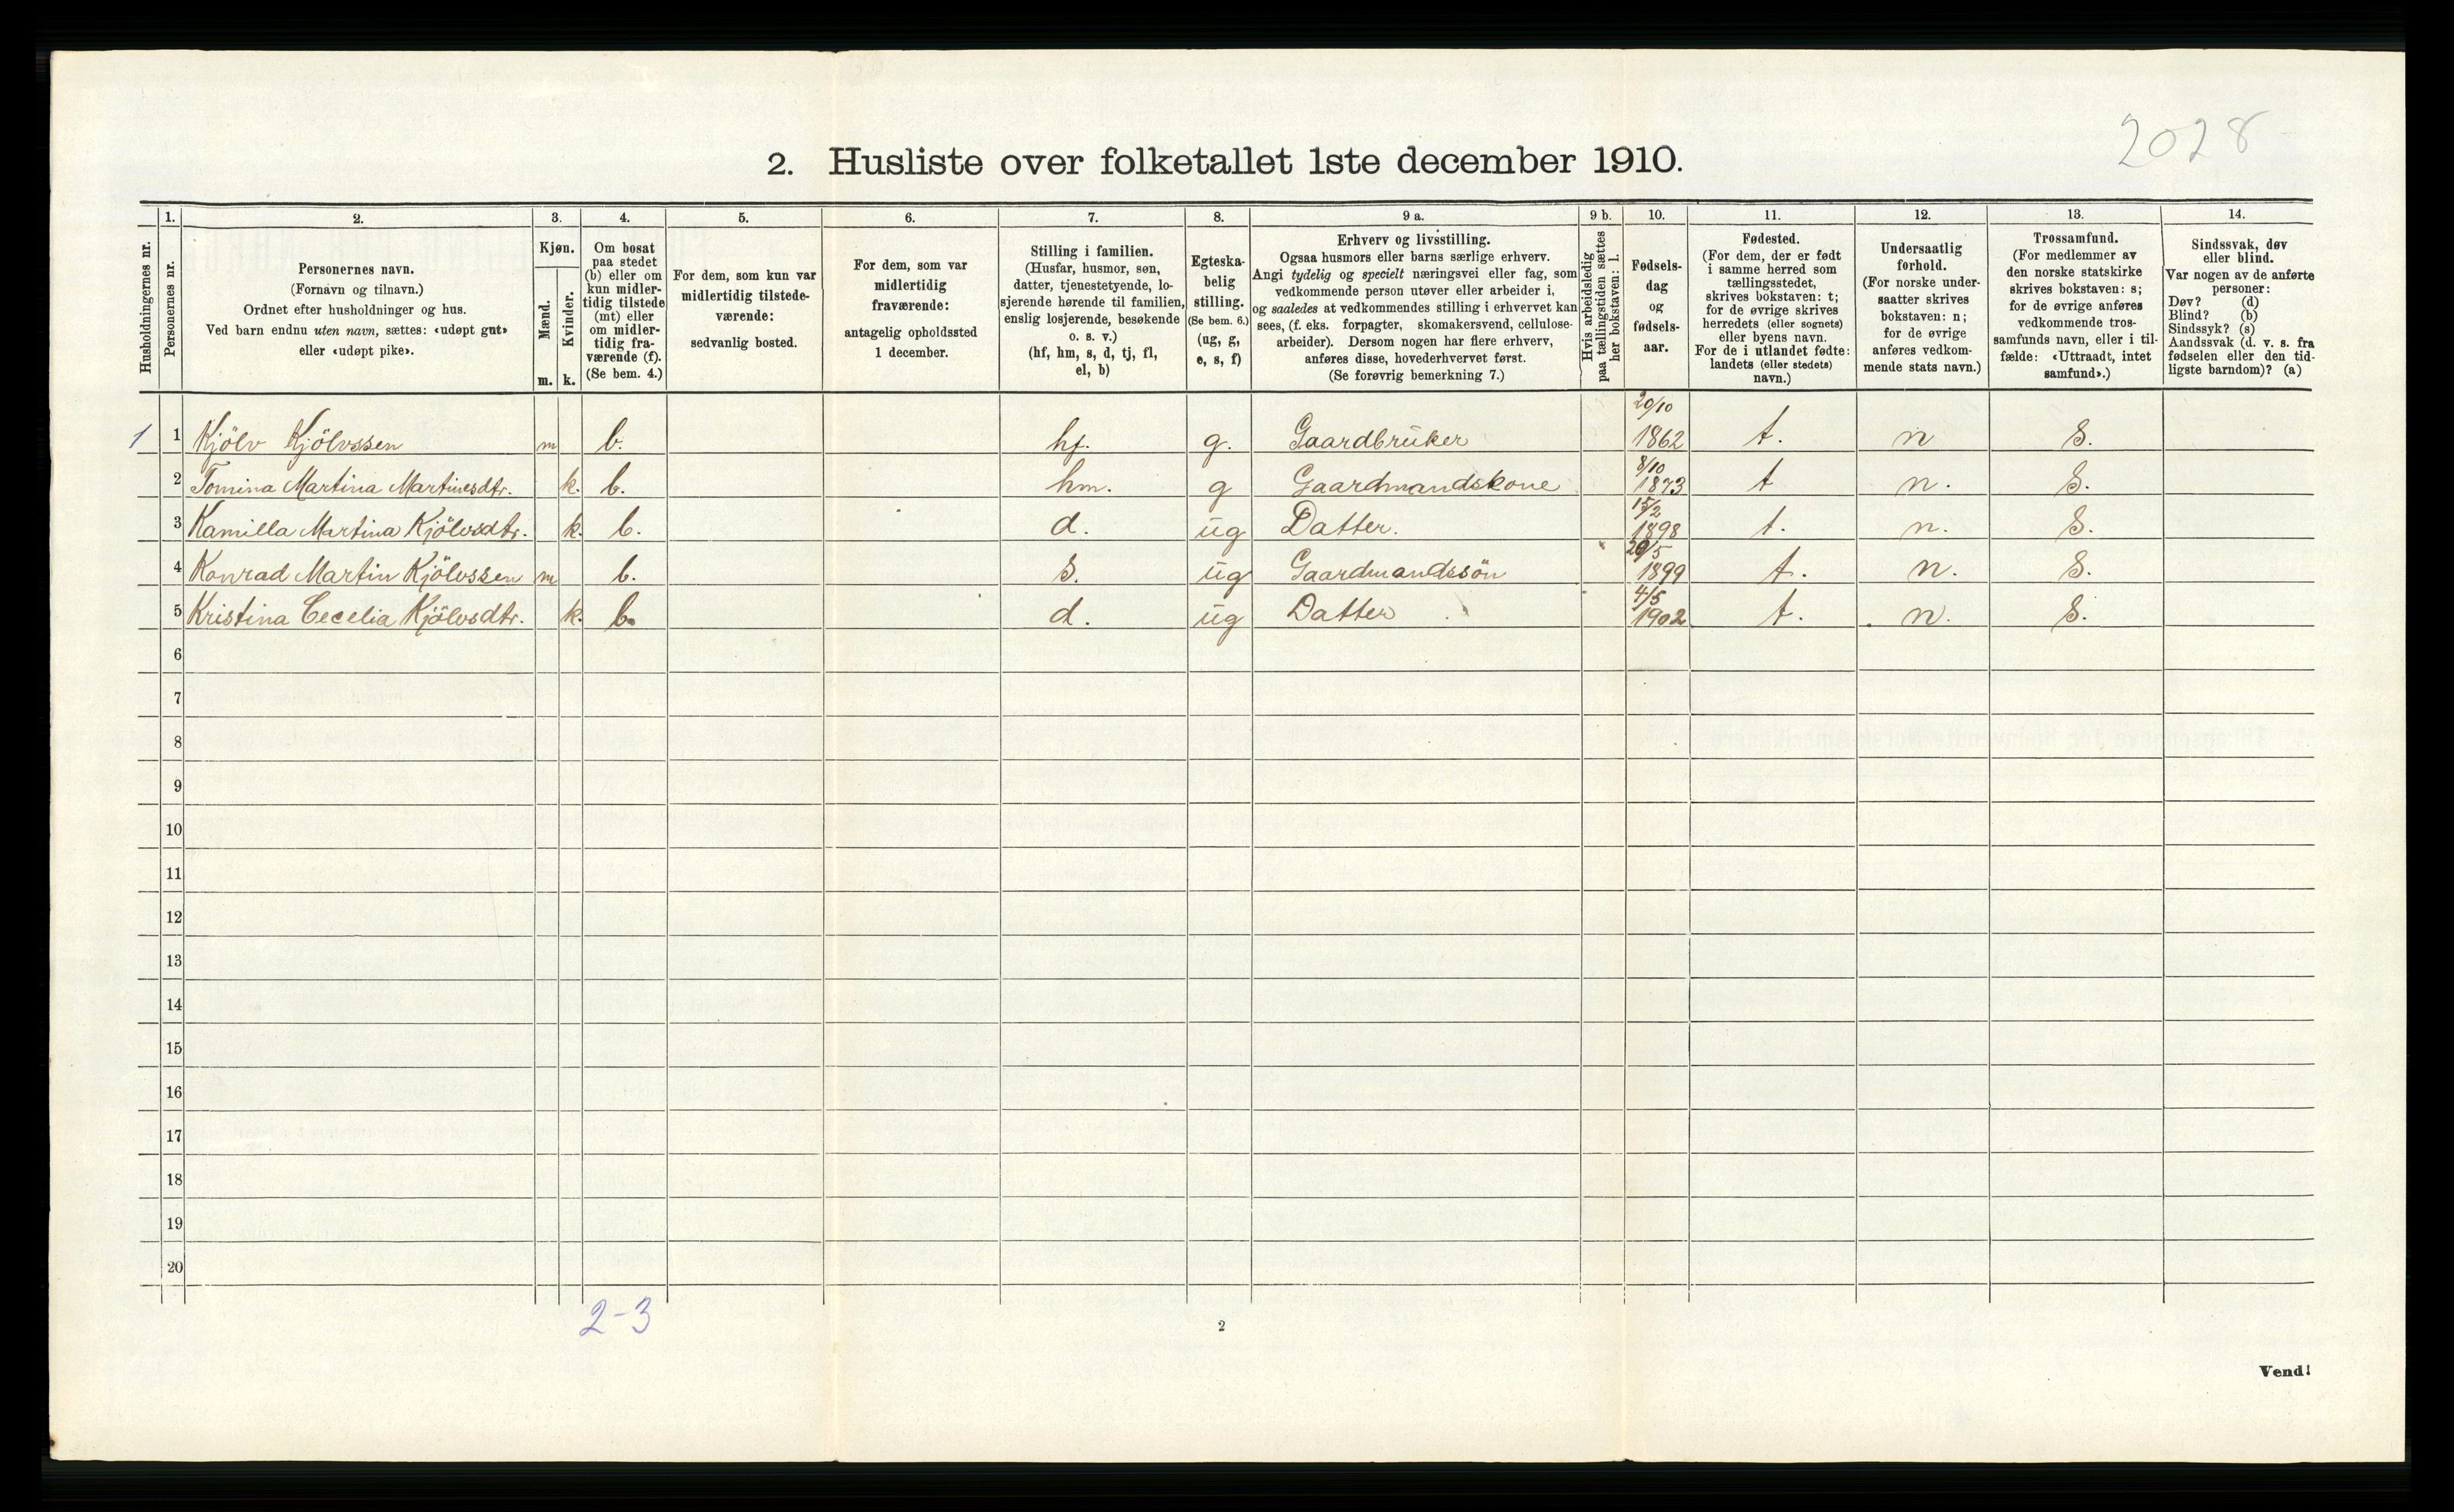 2028
2. Husliste over folketallet 1ste december 1910.
Husholdningernes nr.
1. Personernes nr.
2.
Personernes navn.
(Fornavn og tilnavn.)
Ordnet efter husholdninger og hus.
Ved barn endnu uten navn, sættes: «udøpt gut»
eller «udøpt pike».
3.
Kjøn.
Mænd. m.
Kvinder. k.
4.
Om bosat
paa stedet
(b) eller om
kun midler-
tidig tilstede
(mt) eller
om midler-
tidig fra-
værende (f).
(Se bem. 4.)
5.
For dem, som kun var
midlertidig tilstede-
værende:
sedvanlig bosted.
6.
For dem, som var
midlertidig
fraværende:
antagelig opholdssted
1 december.
7.
Stilling i familien.
(Husfar, husmor, søn,
datter, tjenestetyende, lo-
sjerende hørende til familien,
enslig losjerende, besøkende
o. s. v.)
(hf, hm, s, d, tj, fl,
el, b)
8.
Egteska-
belig
stilling.
(Se bem. 6.)
(ug, g,
e, s, f)
9 a.
Erhverv og livsstilling.
Ogsaa husmors eller barns særlige erhverv.
Angi tydelig og specielt næringsvei eller fag, som
vedkommende person utøver eller arbeider i,
og saaledes at vedkommendes stilling i erhvervet kan
sees, (f. eks. forpagter, skomakersvend, cellulose-
arbeider). Dersom nogen har flere erhverv,
anføres disse, hovederhvervet først.
(Se forøvrig bemerkning 7.)
9 b.
Hvis arbeidsledig
paa tællingstiden sættes
her bokstaven: l.
10.
Fødsels-
dag
og
fødsels-
aar.
11.
Fødested.
(For dem, der er født
i samme herred som
tællingsstedet,
skrives bokstaven: t;
for de øvrige skrives
herredets (eller sognets)
eller byens navn.
For de i utlandet fødte:
landets (eller stedets)
navn.)
12.
Undersaatlig
forhold.
(For norske under-
saatter skrives
bokstaven: n;
for de øvrige
anføres vedkom-
mende stats navn.)
13.
Trossamfund.
(For medlemmer av
den norske statskirke
skrives bokstaven: s;
for de øvrige anføres
vedkommende tros-
samfunds navn, eller i til-
fælde: «Uttraadt, intet
samfund».)
14.
Sindssvak, døv
eller blind.
Var nogen av de anførte
personer:
Døv? (d)
Blind? (b)
Sindssyk? (s)
Aandssvak (d. v. s. fra
fødselen eller den tid-
ligste barndom)? (a)
1 1 Kjölv Kjölvssen m b. hf. g. Gaardbruker 20/10 1862 t. n S.
2 Tomina Martina Martinesdtr. k. b. hm. g Gaardmandskone 8/10 1873 t n. S.
3 Kamilla Martina Kjölvsdtr. k. b. d. ug Datter. 15/2 1898 t. n. S.
4 Konrad Martin Kjölvssen m b. S. ug Gaardmandssön 20/5 1899 t. n. S.
5 Kristina Cecelia Kjölvsdtr. k. b. d. ug Datter 4/5 1902 t. n. S.
6
7
8
9
10
11
12
13
14
15
16
17
18
19
20
2-3
2
Vend!